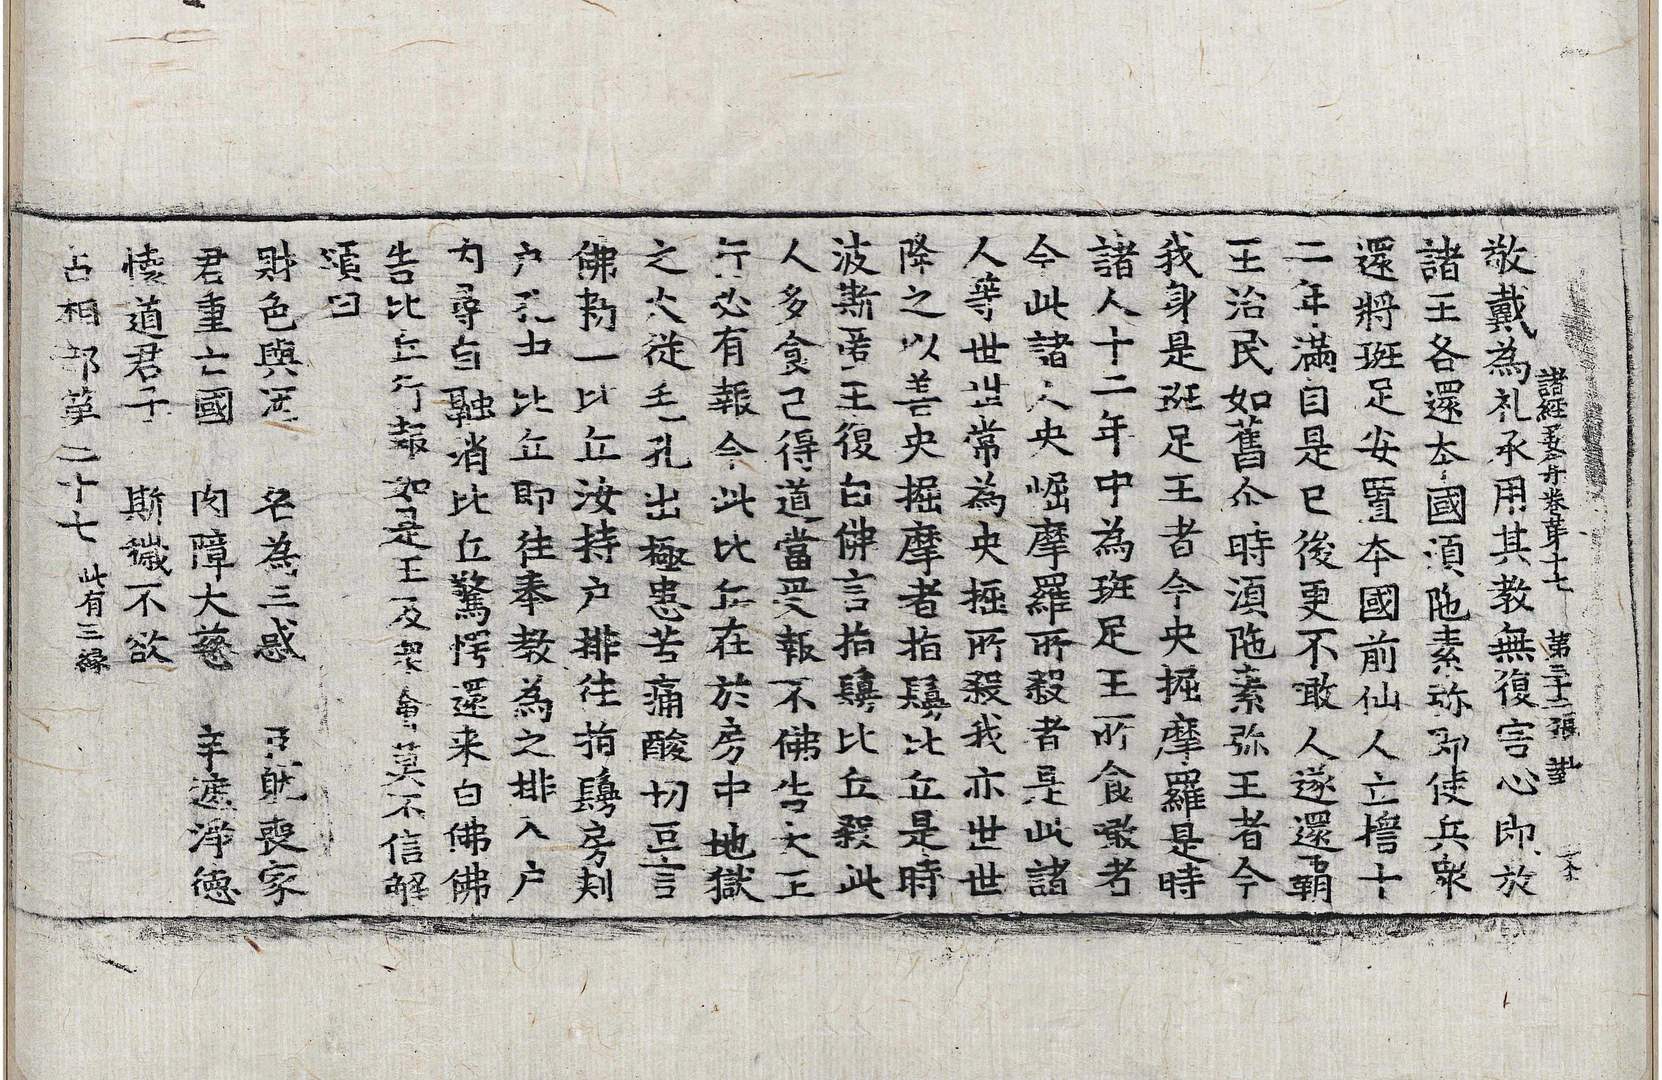 諸經要集卷第十七　第三十二張　
敬戴為礼承用其教無復害心即放
諸王各還本國湏陁素弥即使兵衆
還將班足安置本國前仙人立擔十
二年滿自是已後更不敢人遂還覇
王治民如舊尒時湏陁素弥王者今
我身是班足王者今央掘摩羅是時
諸人十二年中為班足王所食噉者
今此諸人央崛摩羅所殺者是此諸
人等世世常為央掘所殺我亦世世
降之以善央掘摩者指鬘比丘是時
波斯匿王復白佛言指鬘比丘殺此
人多食已得道當受報不佛告大王
行必有報今此比丘在於房中地獄
之火從毛孔出極患苦痛酸切叵言
佛勑一比丘汝持户排往指鬘房刾
户孔中比丘即往奉教為之排入户
内尋自融消比丘驚愕還来白佛佛
告比丘行報如是王及衆會莫不信解
湏曰
財色與酒　名為三惑　臣躭喪家
君重亡國　肉障大慈　辛遮淨德
懐道君子　斯穢不欲
占相部第二十七　此有三緣